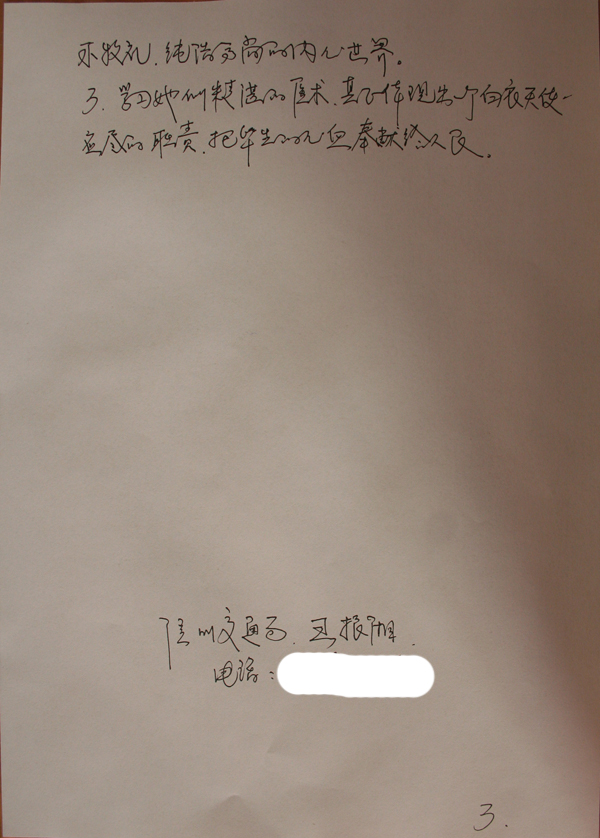 不收礼、纯洁高尚的内心世界。
3、学习她们精湛的医术,真正体现出一个白衣天使
应尽的职责,把毕生的心血奉献给人民。
州交通局
电话:
3.